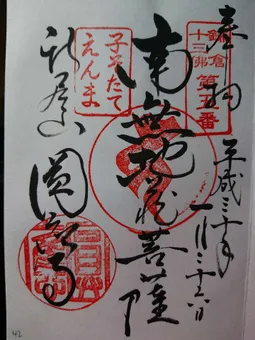 奉拝
鎌倉
十三佛
第五番
平成三十年
一月二十六日
南無地蔵菩薩
子そだて
えんま
新居山
圓應寺
42